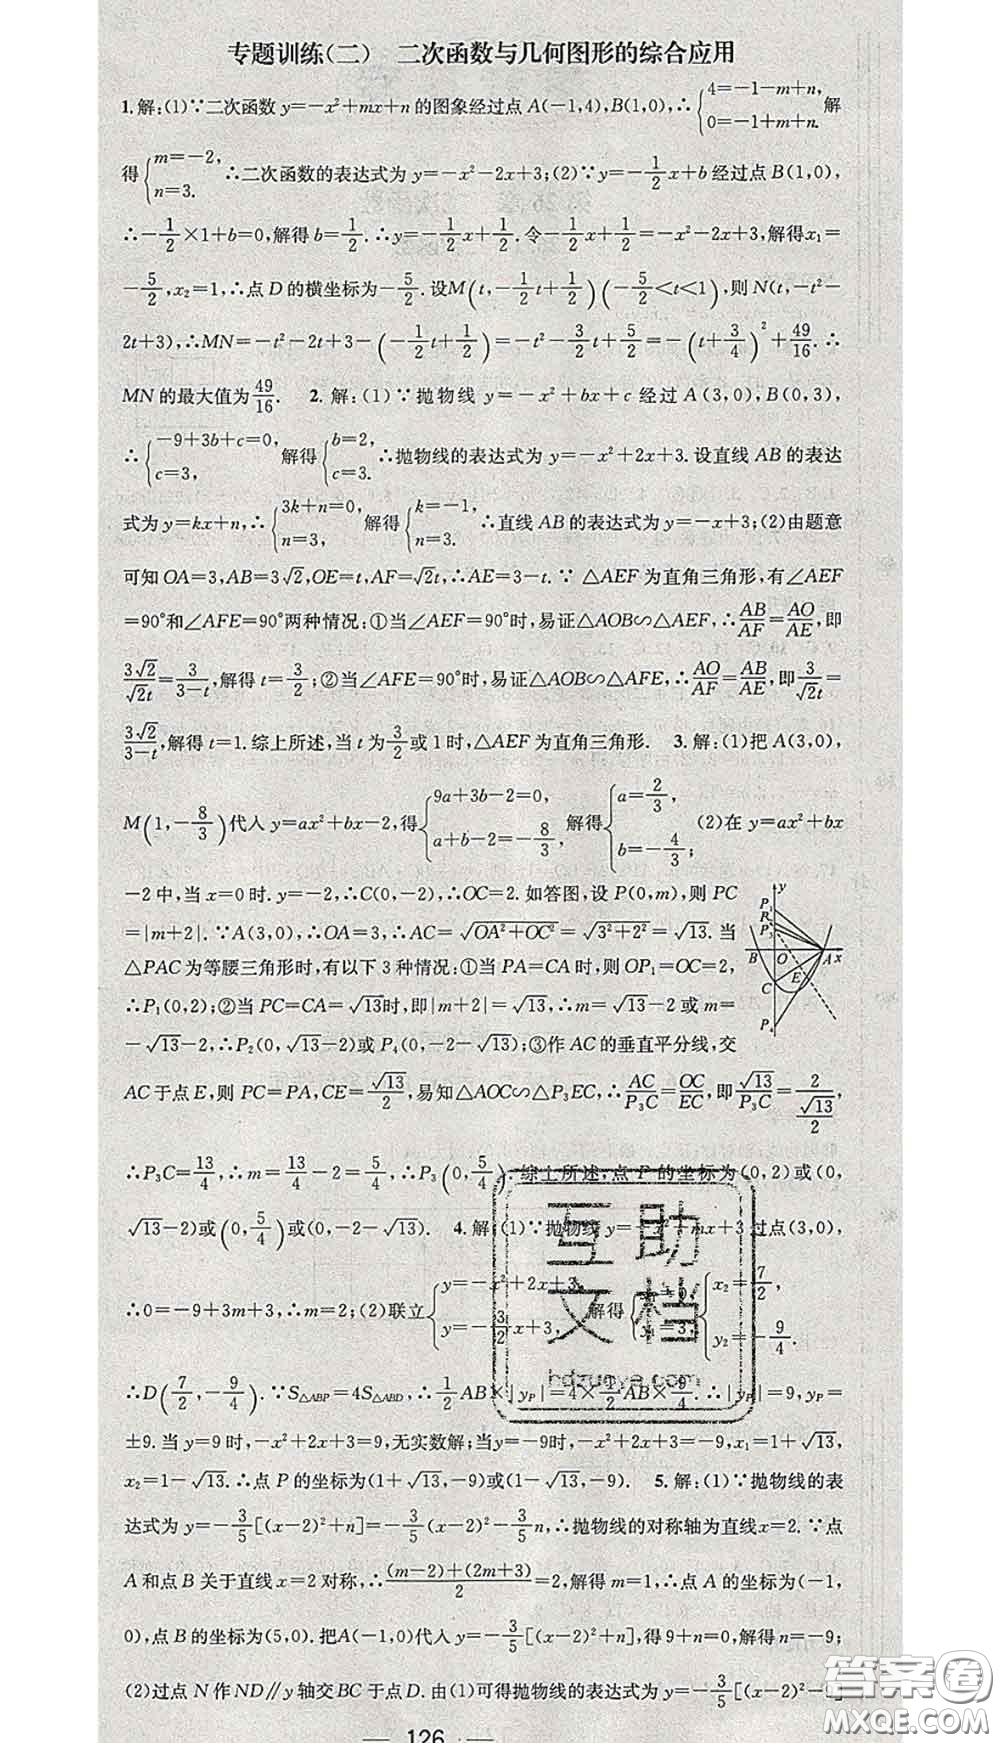 专题训练(二)　二次函数与几何图形的综合应用
1.解:(1)∵二次函数 y=-x²+mx+n 的图象经过点 A(-1,4),B(1,0),∴{4=-1-m+n, 0=-1+m+n. 解
得{m=-2, n=3. ∴二次函数的表达式为 y=-x²-2x+3;(2)∵y=-1/2x+b 经过点 B(1,0),
∴-1/2×1+b=0,解得 b=1/2.∴y=-1/2x+1/2.令-1/2x+1/2=-x²-2x+3,解得x₁=
-5/2,x₂=1,∴点 D 的横坐标为-5/2.设M(t,-1/2t+1/2)(-5/2<t<1),则 N(t,-t²-
2t+3),∴MN=-t²-2t+3-(-1/2t+1/2)=-t²-3/2t+5/2=-(t+3/4)²+49/16.∴
MN 的最大值为49/16. 2.解:(1)∵抛物线 y=-x²+bx+c 经过 A(3,0),B(0,3),
∴{-9+3b+c=0, c=3, 解得{b=2, c=3. ∴抛物线的表达式为 y=-x²+2x+3.设直线 AB 的表达
式为 y=kx+n,∴{3k+n=0, n=3, 解得{k=-1, n=3. ∴直线 AB 的表达式为 y=-x+3;(2)由题意
可知 OA=3,AB=3√2,OE=t,AF=√2t,∴AE=3-t.∵△AEF 为直角三角形,有∠AEF
=90°和∠AFE=90°两种情况:①当∠AEF=90°时,易证△AOB∽△AEF,∴AB/AF=AO/AE,即
3√2/√2t=3/3-t,解得 t=3/2;②当∠AFE=90°时,易证△AOB∽△AFE,∴AO/AF=AB/AE,即3/√2t=
3√2/3-t,解得 t=1.综上所述,当 t 为3/2或 1 时,△AEF 为直角三角形. 3.解:(1)把 A(3,0),
M(1,-8/3)代入 y=ax²+bx-2,得{9a+3b-2=0, a+b-2=-8/3, 解得{a=2/3, b=-4/3; (2)在 y=ax²+bx
-2 中,当 x=0 时.y=-2,∴C(0,-2),∴OC=2.如答图,设 P(0,m),则 PC
=|m+2|.∵A(3,0),∴OA=3,∴AC=√OA²+OC²=√3²+2²=√13.当
△PAC 为等腰三角形时,有以下 3 种情况:①当 PA=CA 时,则 OP₁=OC=2,
∴P₁(0,2);②当 PC=CA=√13时,即|m+2|=√13,∴m=√13-2 或 m=
-√13-2,∴P₂(0,√13-2)或 P₄(0,-2-√13);③作 AC 的垂直平分线,交
AC 于点 E,则 PC=PA,CE=√13/2,易知△AOC∽△P₃EC,∴AC/P₃C=OC/EC,即√13/P₃C=2/(√13/2),
y P₁ P₃ B O A x C E P₄
∴P₃C=13/4,∴m=13/4-2=5/4,∴P₃(0,5/4).综上所述,点 P 的坐标为(0,2)或(0,
√13-2)或(0,5/4)或(0,-2-√13). 4.解:(1)∵抛物线 y=-x²+mx+3 过点(3,0),
∴0=-9+3m+3,∴m=2;(2)联立{y=-x²+2x+3, y=-3/2x+3, 解得 {x₂=7/2, y₂=-9/4.
∴D(7/2,-9/4).∵S△ABP=4S△ABD,∴1/2AB×|yP|=4×1/2AB×9/4.∴|yP|=9,yP=
±9.当 y=9 时,-x²+2x+3=9,无实数解;当 y=-9时,-x²+2x+3=-9,x₁=1+√13,
x₂=1-√13.∴点 P 的坐标为(1+√13,-9)或(1-√13,-9). 5.解:(1)∵抛物线的表
达式为 y=-3/5[(x-2)²+n]=-3/5(x-2)²-3/5n,∴抛物线的对称轴为直线x=2.∵点
A 和点 B 关于直线 x=2 对称,∴(m-2)+(2m+3)/2=2,解得 m=1,∴点 A 的坐标为(-1,
0),点 B 的坐标为(5,0).把A(-1,0)代入 y=-3/5[(x-2)²+n],得 9+n=0,解得 n=-9;
(2)过点 N 作 ND∥y 轴交BC 于点 D.由(1)可得抛物线的表达式为 y=-3/5[(x-2)²-
— 126 —
互助文档
hdzuoye.com
答案圈
MXQE.COM